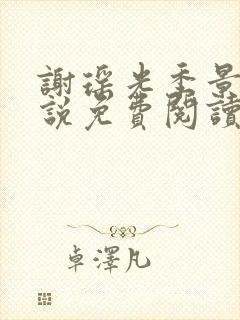 謝瑤光季景
說免費閱讀
卓澤凡